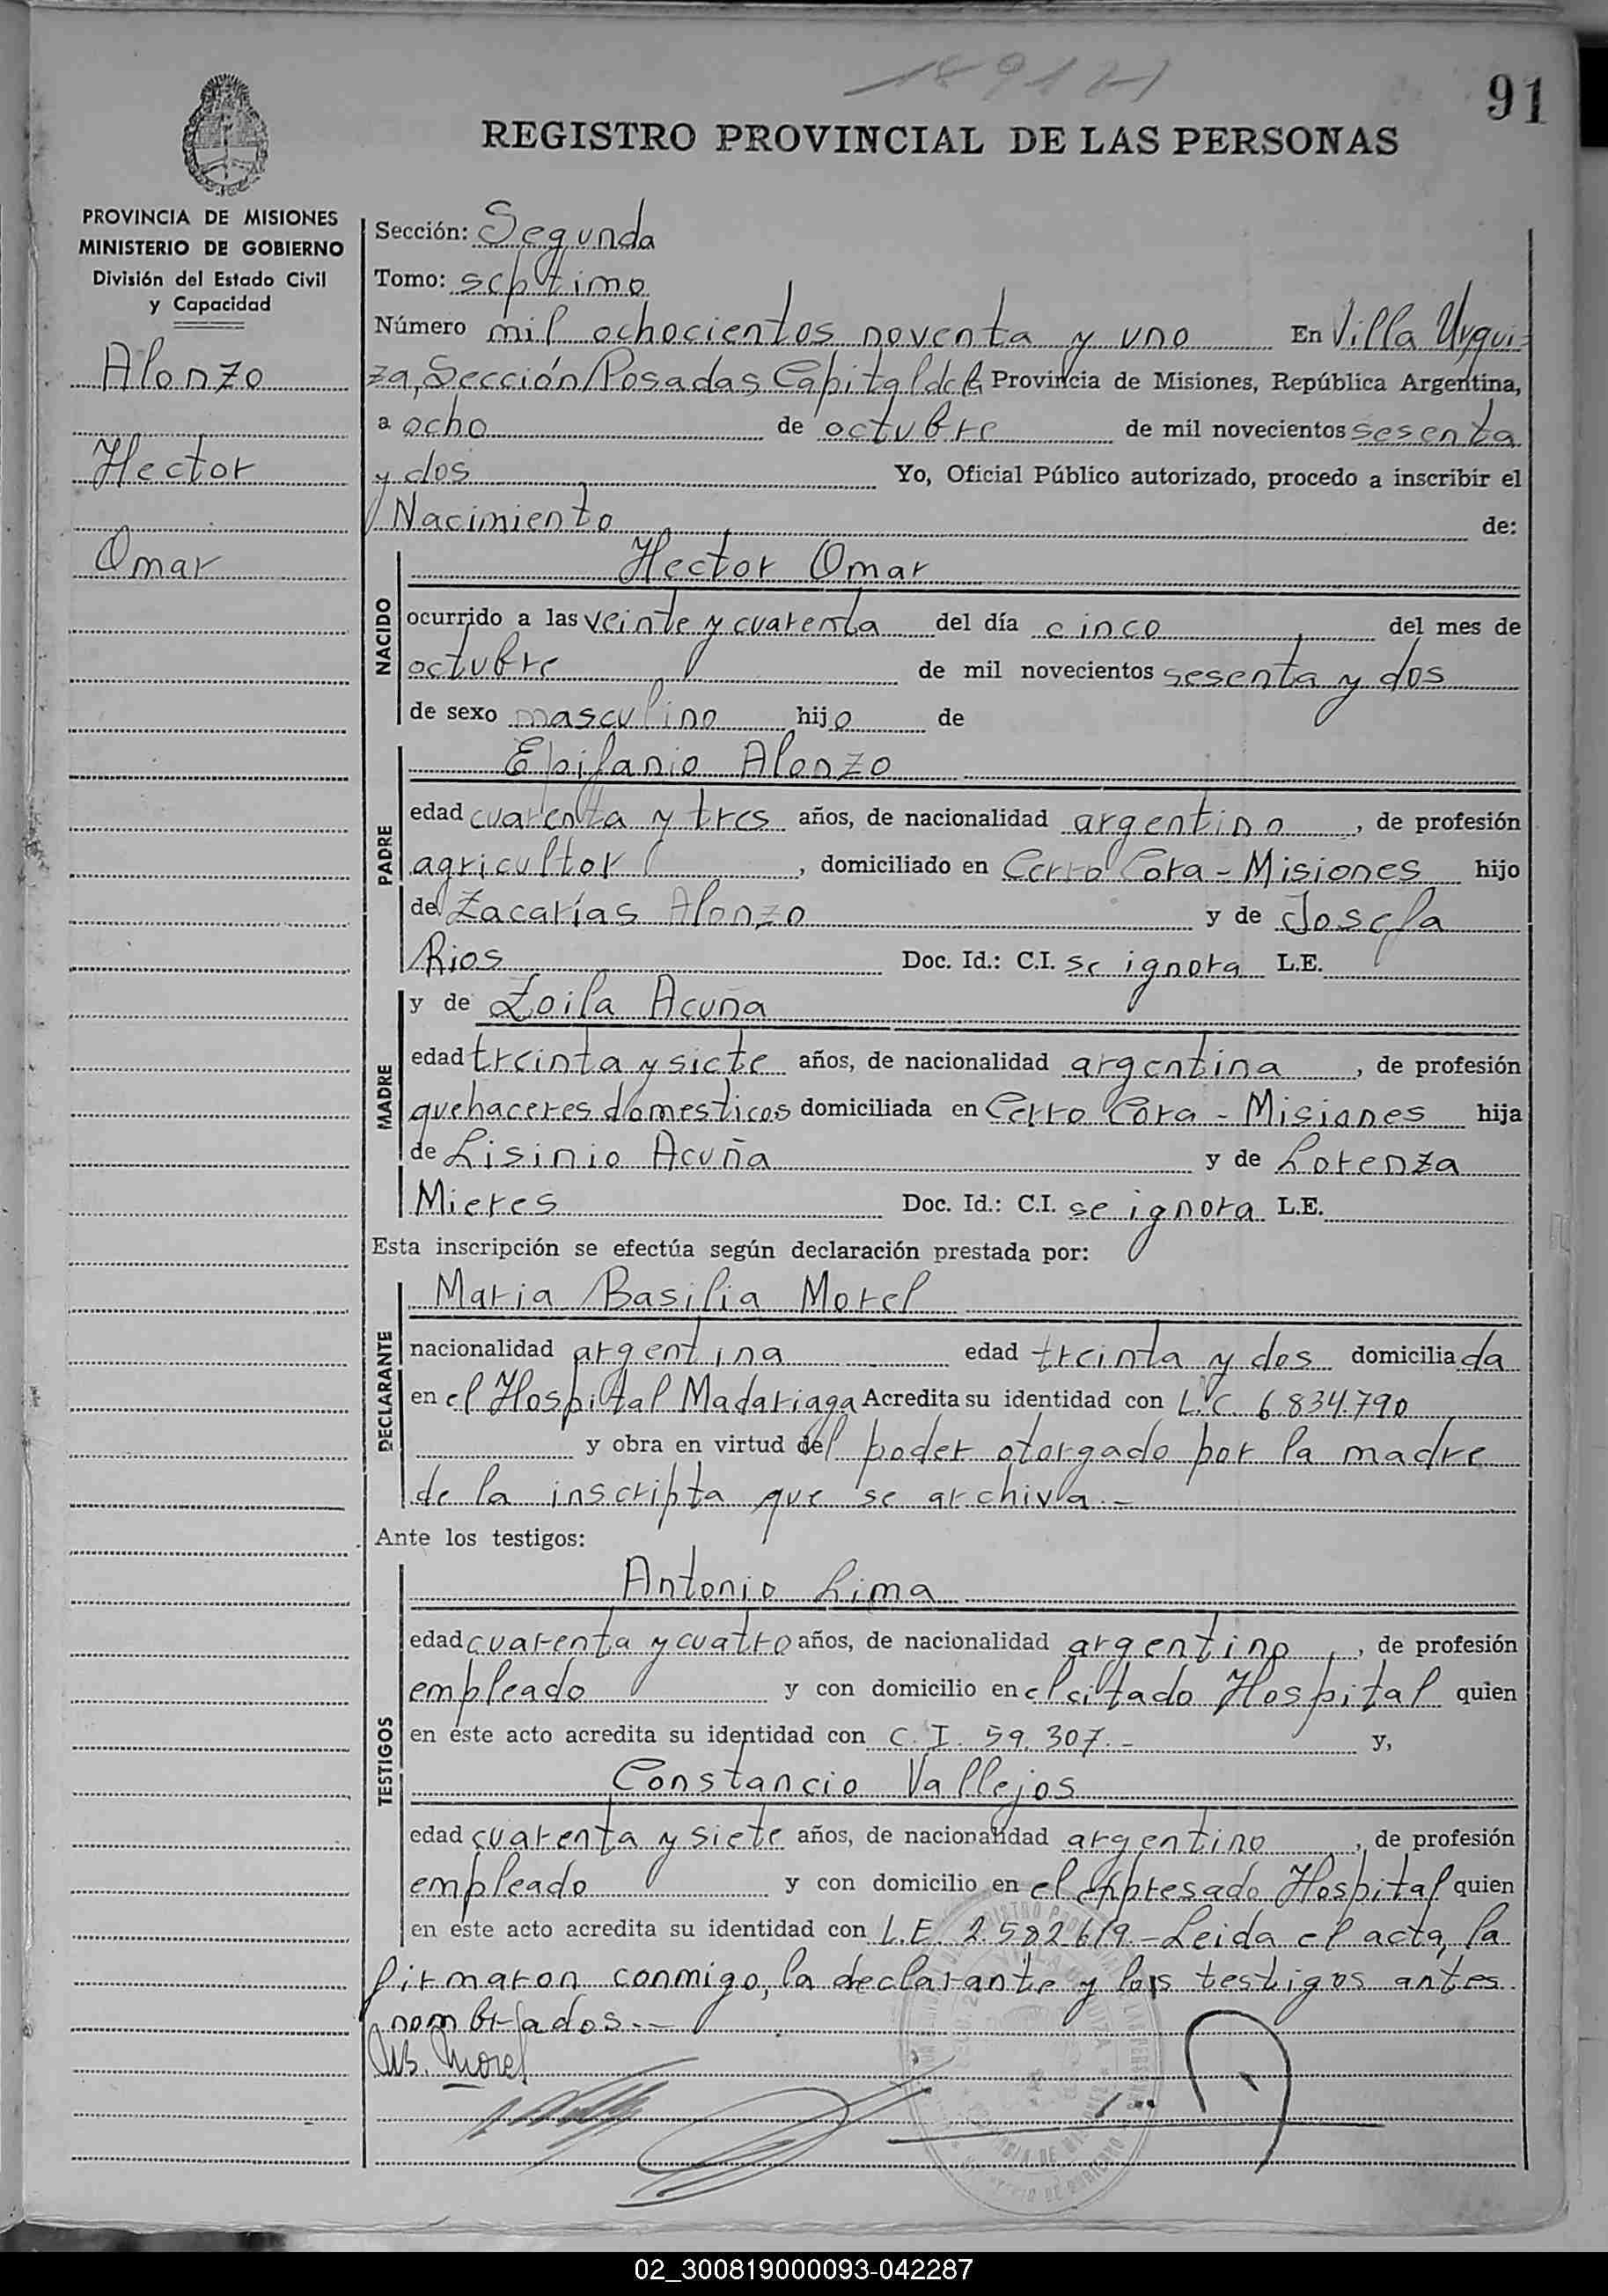 1891 H
91
REGISTRO PROVINCIAL DE LAS PERSONAS
PROVINCIA DE MISIONES
MINISTERIO DE GOBIERNO
División del Estado Civil
y Capacidad
Alonzo
Hector
Omar
Sección: Segunda
Tomo: septimo
Número mil ochocientos noventa y uno En Villa Urqui-
za, Sección Posadas Capital de la Provincia de Misiones, República Argentina,
a ocho de octubre de mil novecientos sesenta
y dos Yo, Oficial Público autorizado, procedo a inscribir el
Nacimiento de:
NACIDO
Hector Omar
ocurrido a las veinte y cuarenta del día cinco del mes de
octubre de mil novecientos sesenta y dos
de sexo masculino hijo de
PADRE
Epifanio Alonzo
edad cuarenta y tres años, de nacionalidad argentino, de profesión
agricultor, domiciliado en Cerro Cora - Misiones hijo
de Zacarías Alonzo y de Josefa
Rios Doc. Id.: C.I. se ignora L.E.
MADRE
y de Zoila Acuña
edad treinta y siete años, de nacionalidad argentina, de profesión
quehaceres domesticos domiciliada en Cerro Cora - Misiones hija
de Lisinio Acuña y de Lorenza
Mieres Doc. Id.: C.I. se ignora L.E.
Esta inscripción se efectúa según declaración prestada por:
DECLARANTE
Maria Basilia Morel
nacionalidad argentina edad treinta y dos domiciliada
en el Hospital Madariaga Acredita su identidad con L.C. 6.834.790
y obra en virtud del poder otorgado por la madre
de la inscripta que se archiva.-
Ante los testigos:
TESTIGOS
Antonio Lima
edad cuarenta y cuatro años, de nacionalidad argentino, de profesión
empleado y con domicilio en el citado Hospital quien
en este acto acredita su identidad con C.I. 59.307.- y,
Constancio Vallejos
edad cuarenta y siete años, de nacionalidad argentino, de profesión
empleado y con domicilio en el expresado Hospital quien
en este acto acredita su identidad con L.E. 2.582.619.- Leida el acta, la
firmaron conmigo, la declarante y los testigos antes
nombrados.--
MB. Morel
02_300819000093-042287